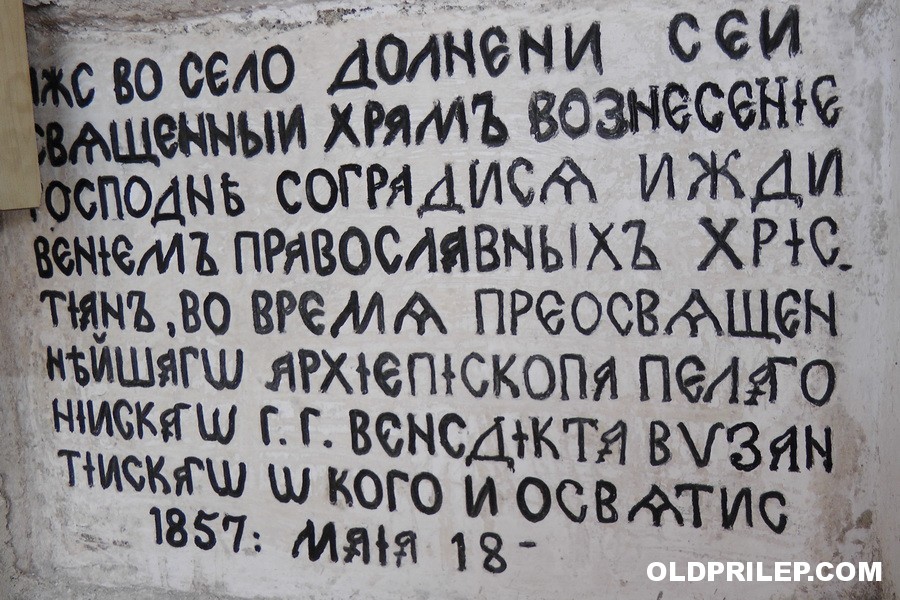 ИЖС ВО СЕЛО ДОЛНЕНИ СЕИ
СВѦЩЕННЫИ ХРАМЪ ВОЗНЕСЕНІЕ
ГОСПОДНѢ СОГРАДИСѦ ИЖДИ
ВЕНІЕМЪ ПРАВОСЛАВНЫХЪ ХРІС.
ТІАНЪ, ВО ВРЕМѦ ПРЕОСВѦЩЕН
НѢЙШАГѠ АРХІЕПІСКОПА ПЕЛАГО
НІИСКАГѠ Г. Г. ВЕНСДІКТА ВѴЗАН
ТІИСКАГѠ Ѡ КОГО И ОСВѦТИС
1857: МАІА 18-
OLDPRILEP.COM